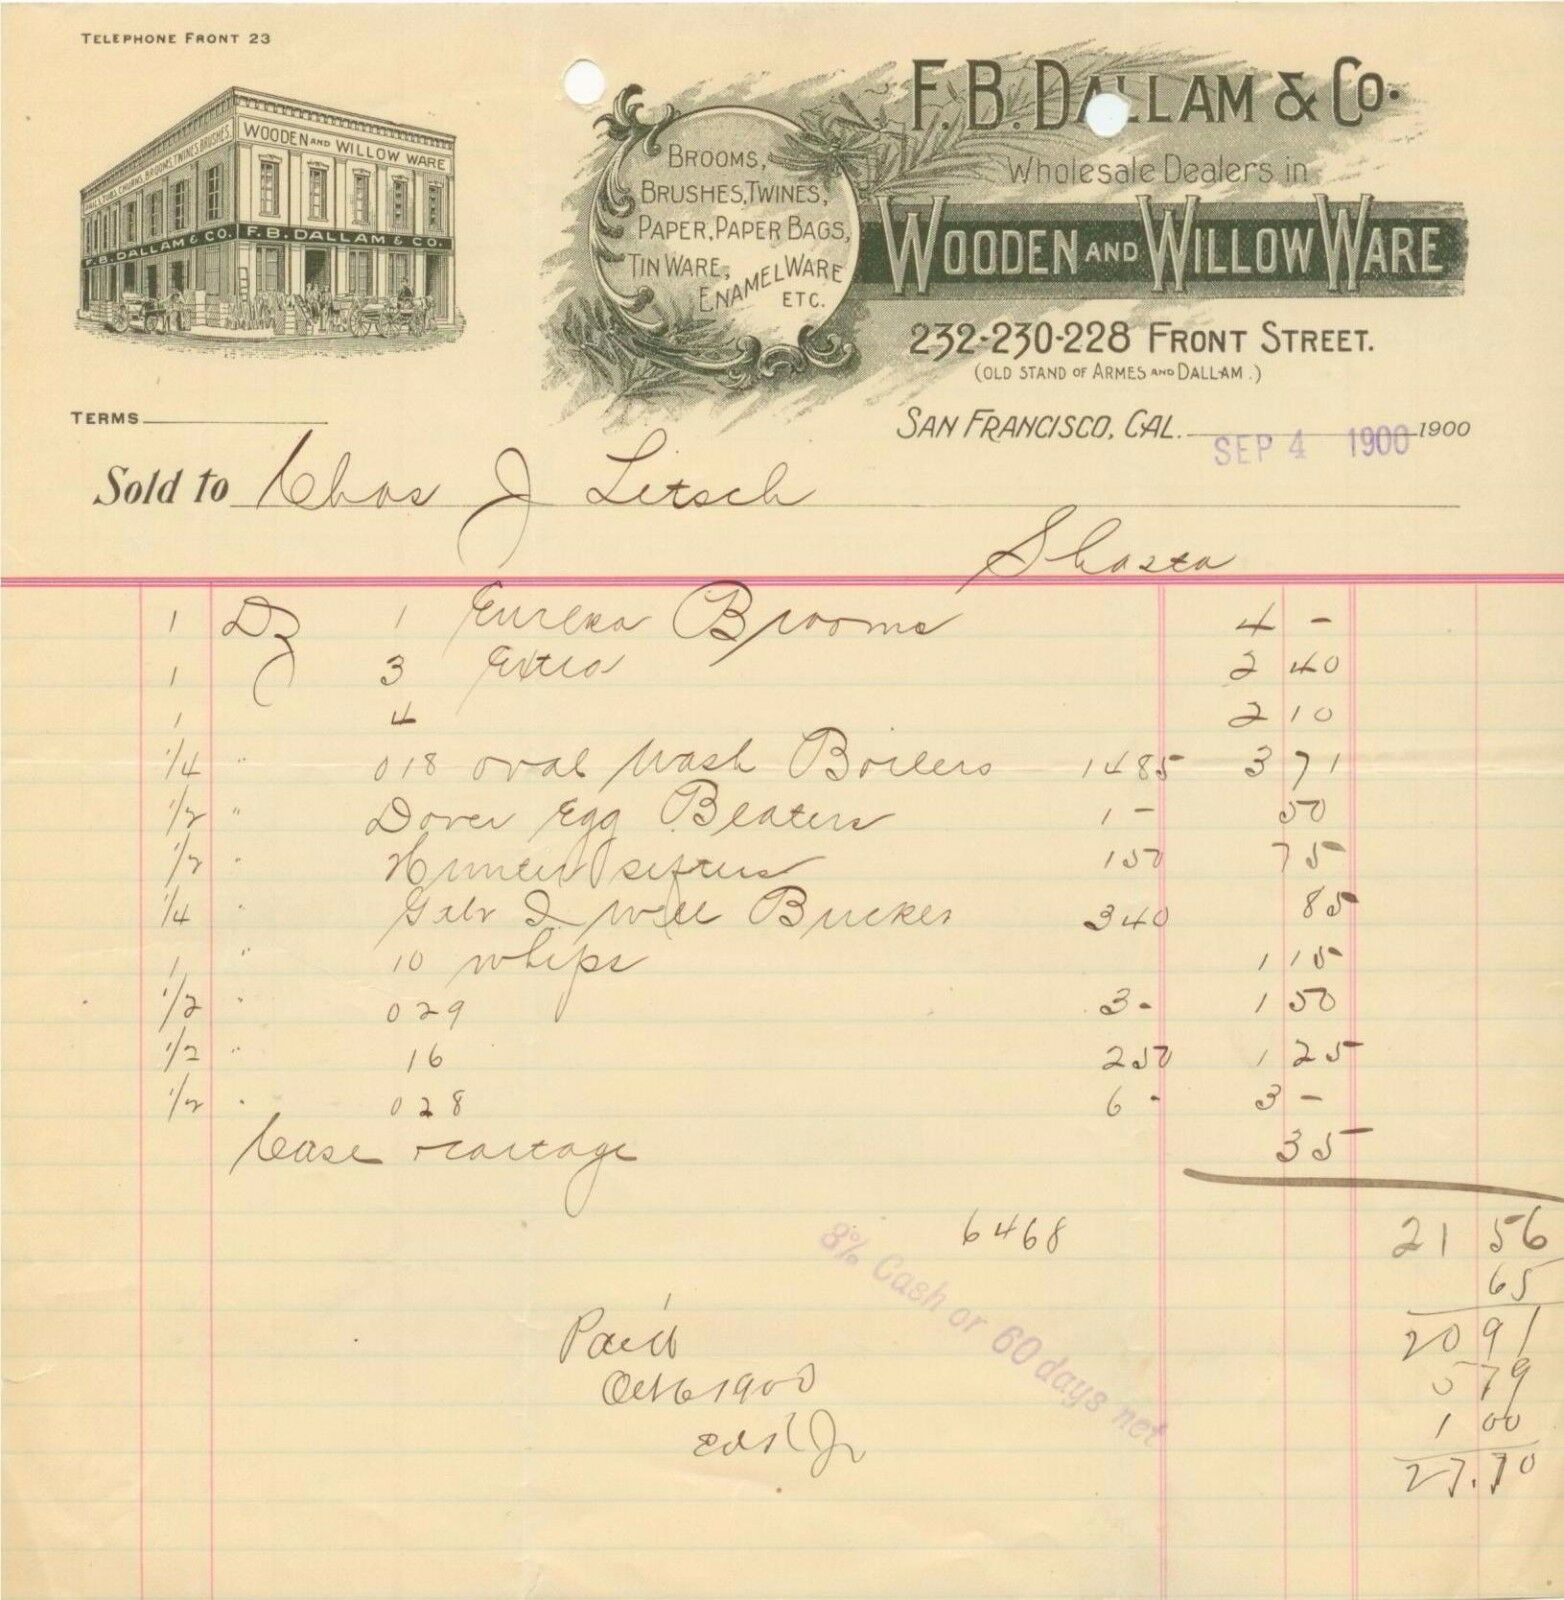 TELEPHONE FRONT 23
WALL TUBS, CHURNS, BROOMS, TWINES, BRUSHES.
WOODEN AND WILLOW WARE
F.B. DALLAM & CO. F.B. DALLAM & CO.
F.B. DALLAM & CO.
BROOMS,
BRUSHES, TWINES,
PAPER, PAPER BAGS,
TIN WARE,
ENAMELWARE
ETC.
Wholesale Dealers in
WOODEN AND WILLOW WARE
232-230-228 FRONT STREET.
(OLD STAND OF ARMES AND DALLAM.)
TERMS
SAN FRANCISCO, CAL. SEP 4 1900 1900
Sold to Chas J Litsch
Shasta
1 Dz 1 Eureka Brooms 4 -
1 3 Extra 2 40
1 4 2 10
1/4 " 018 oval Wash Boilers 1485 3 71
1/2 " Dover Egg Beaters 1- 50
1/2 " Hunter sifters 150 75
1/4 " Galv I Well Bucket 340 85
1 " 10 whips 1 15
1/2 " 029 3- 1 50
1/2 " 16 250 1 25
1/2 " 028 6- 3 -
Case + cartage 35
6468 21 56
8% Cash or 60 days net
65
20 91
Paid
5 79
Oct 6 1900
1 00
27.70